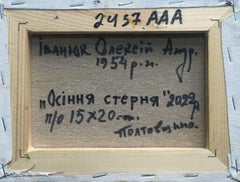 2457.ААА
Іванюк Олексій Андр.
1954 р.н.
„Осіння стерня" 2022р
п/о 15х20 см.
Полтавщина.